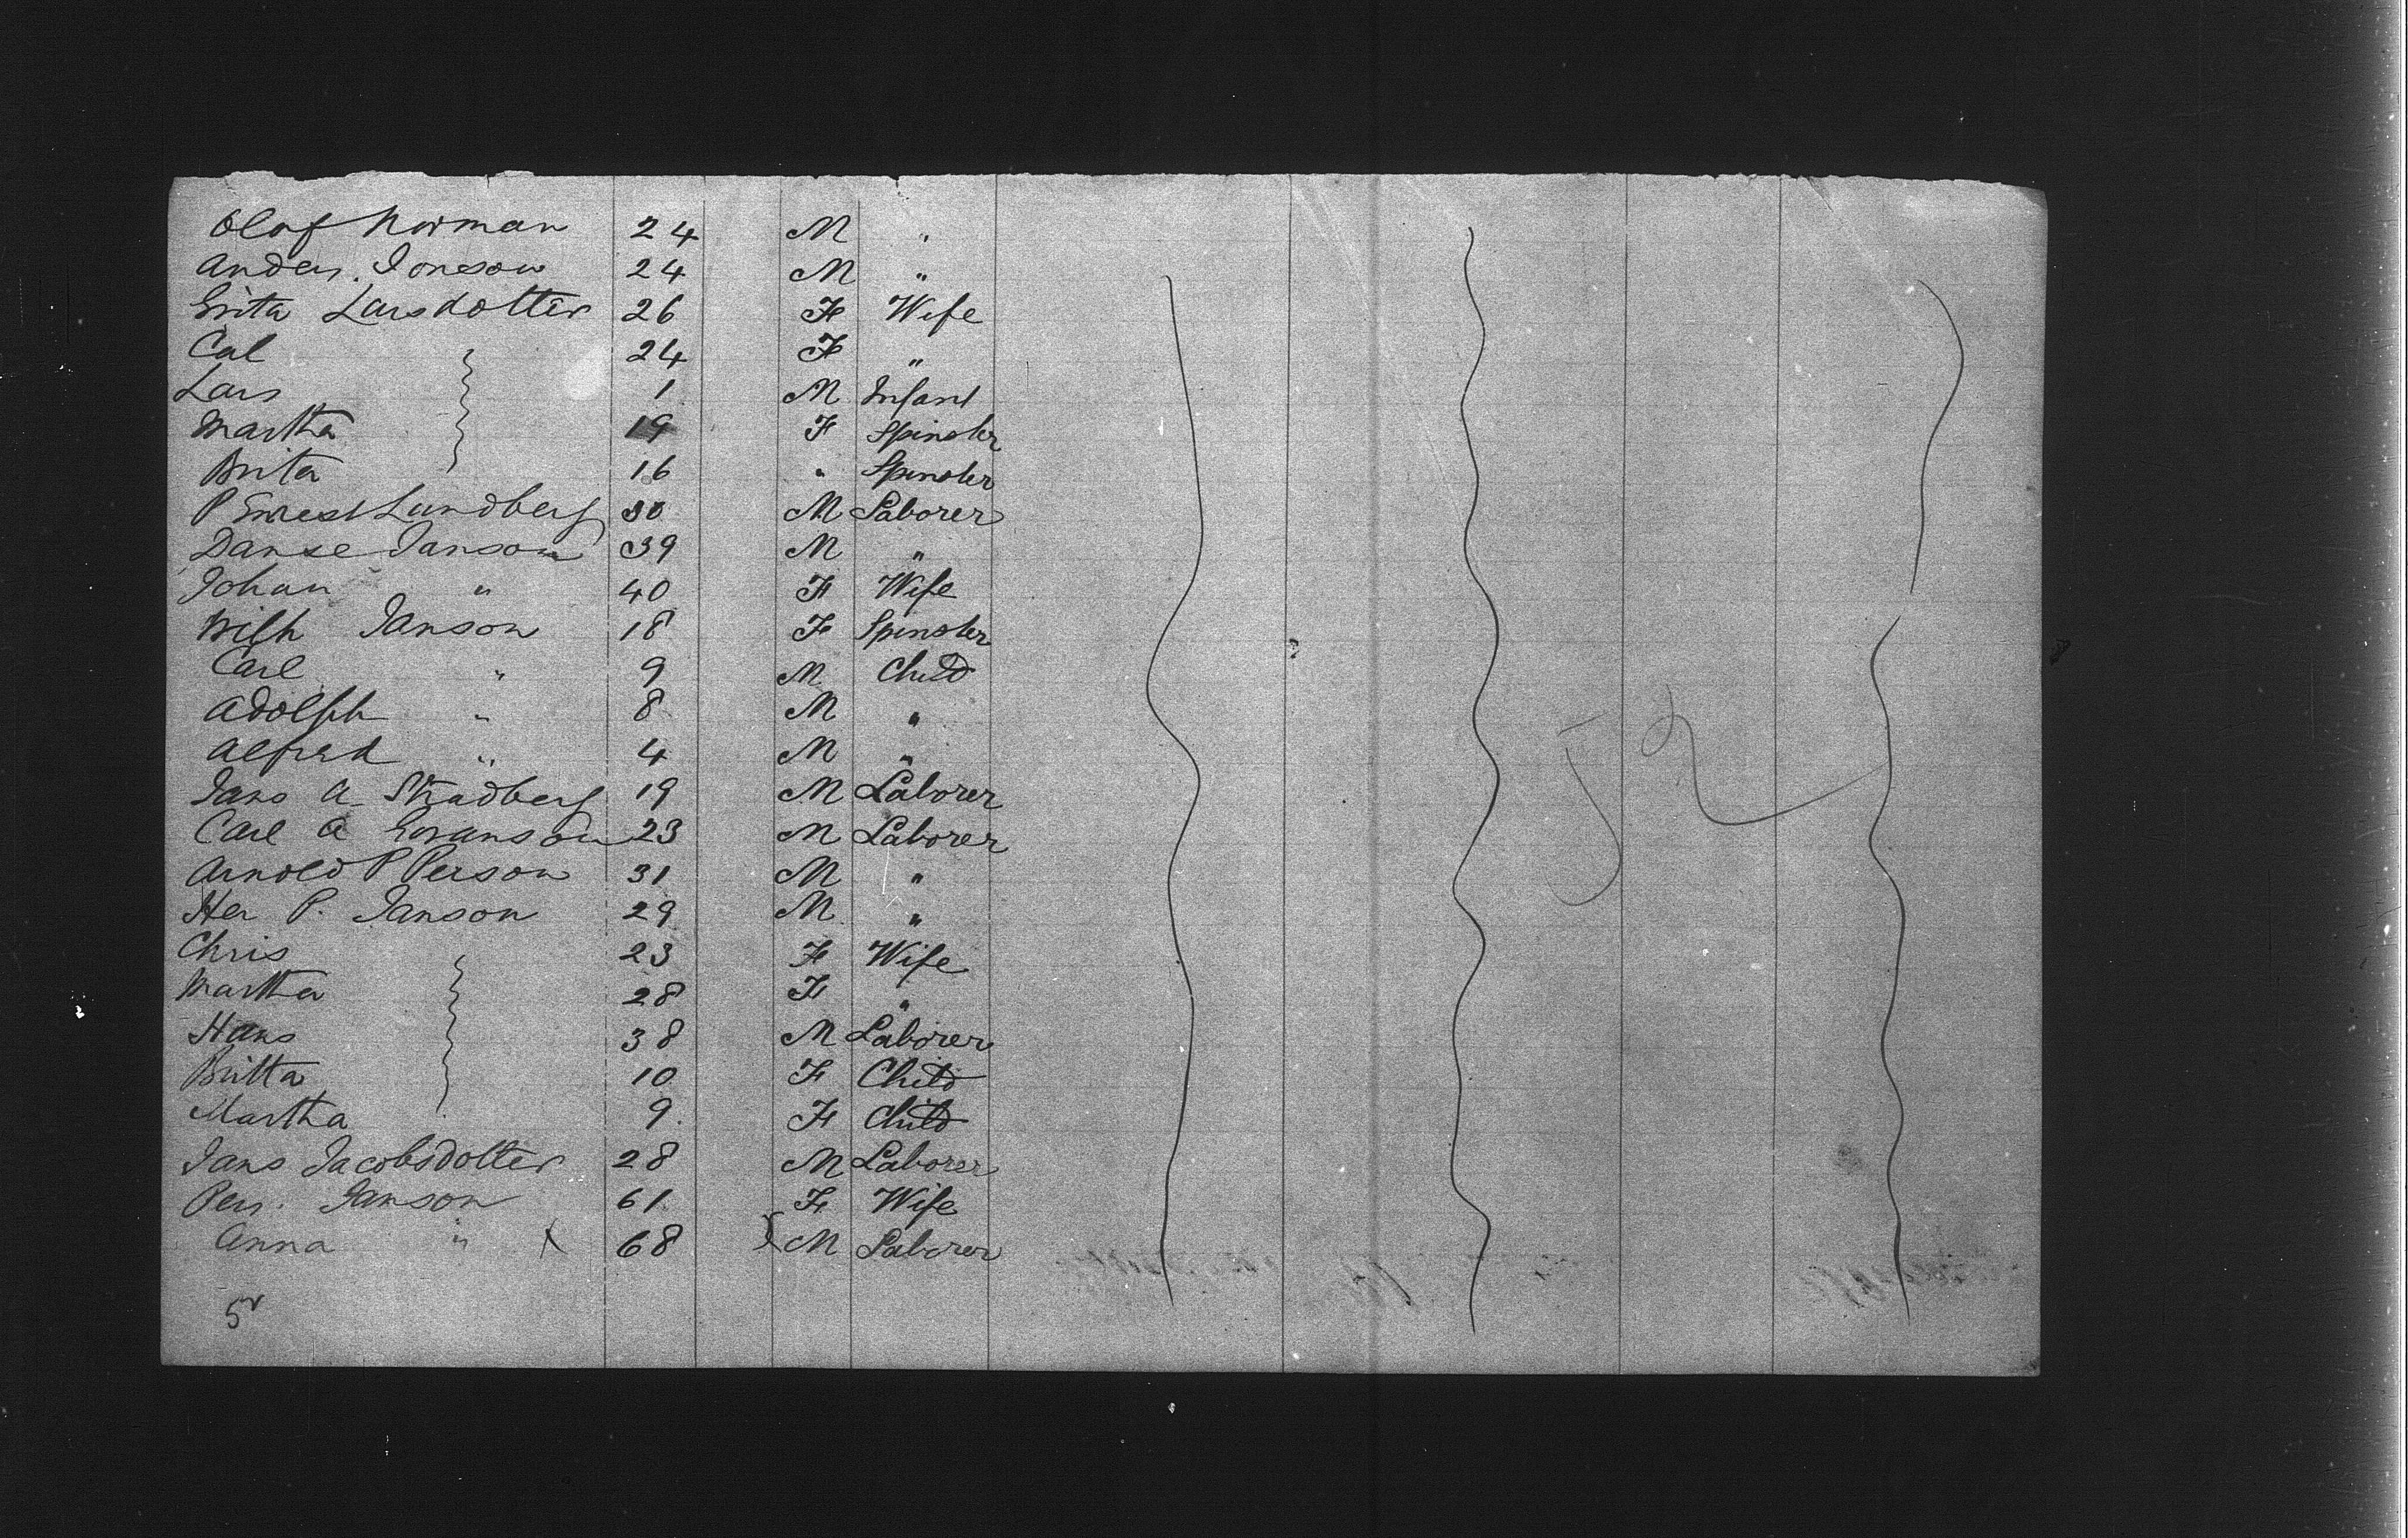 Olaf Norman 24 M "
Anders. Joneson 24 M "
Grita Larsdotter 26 F Wife
Cal 24 F "
Lars 1 M Infant
Martha 19 F Spinster
Brita 16 " Spinster
P Ernest Lundberg 30 M Laborer
Danse Janson 39 M "
Johan " 40 F Wife
Wilh Janson 18 F Spinster
Carl " 9 M Child
Adolph " 8 M "
Alfred " 4 M "
Jans A. Stradberg 19 M Laborer
Carl A Evanson 23 M Laborer
Arnold P Person 31 M "
Her P. Janson 29 M "
Chris 23 F Wife
Martha 28 F "
Hans 38 M Laborer
Britta 10 F Child
Martha 9. F Child
Jans Jacobsdotter 28 M Laborer
Pers. Janson 61 F Wife
Anna " X 68 X M Laborer
5